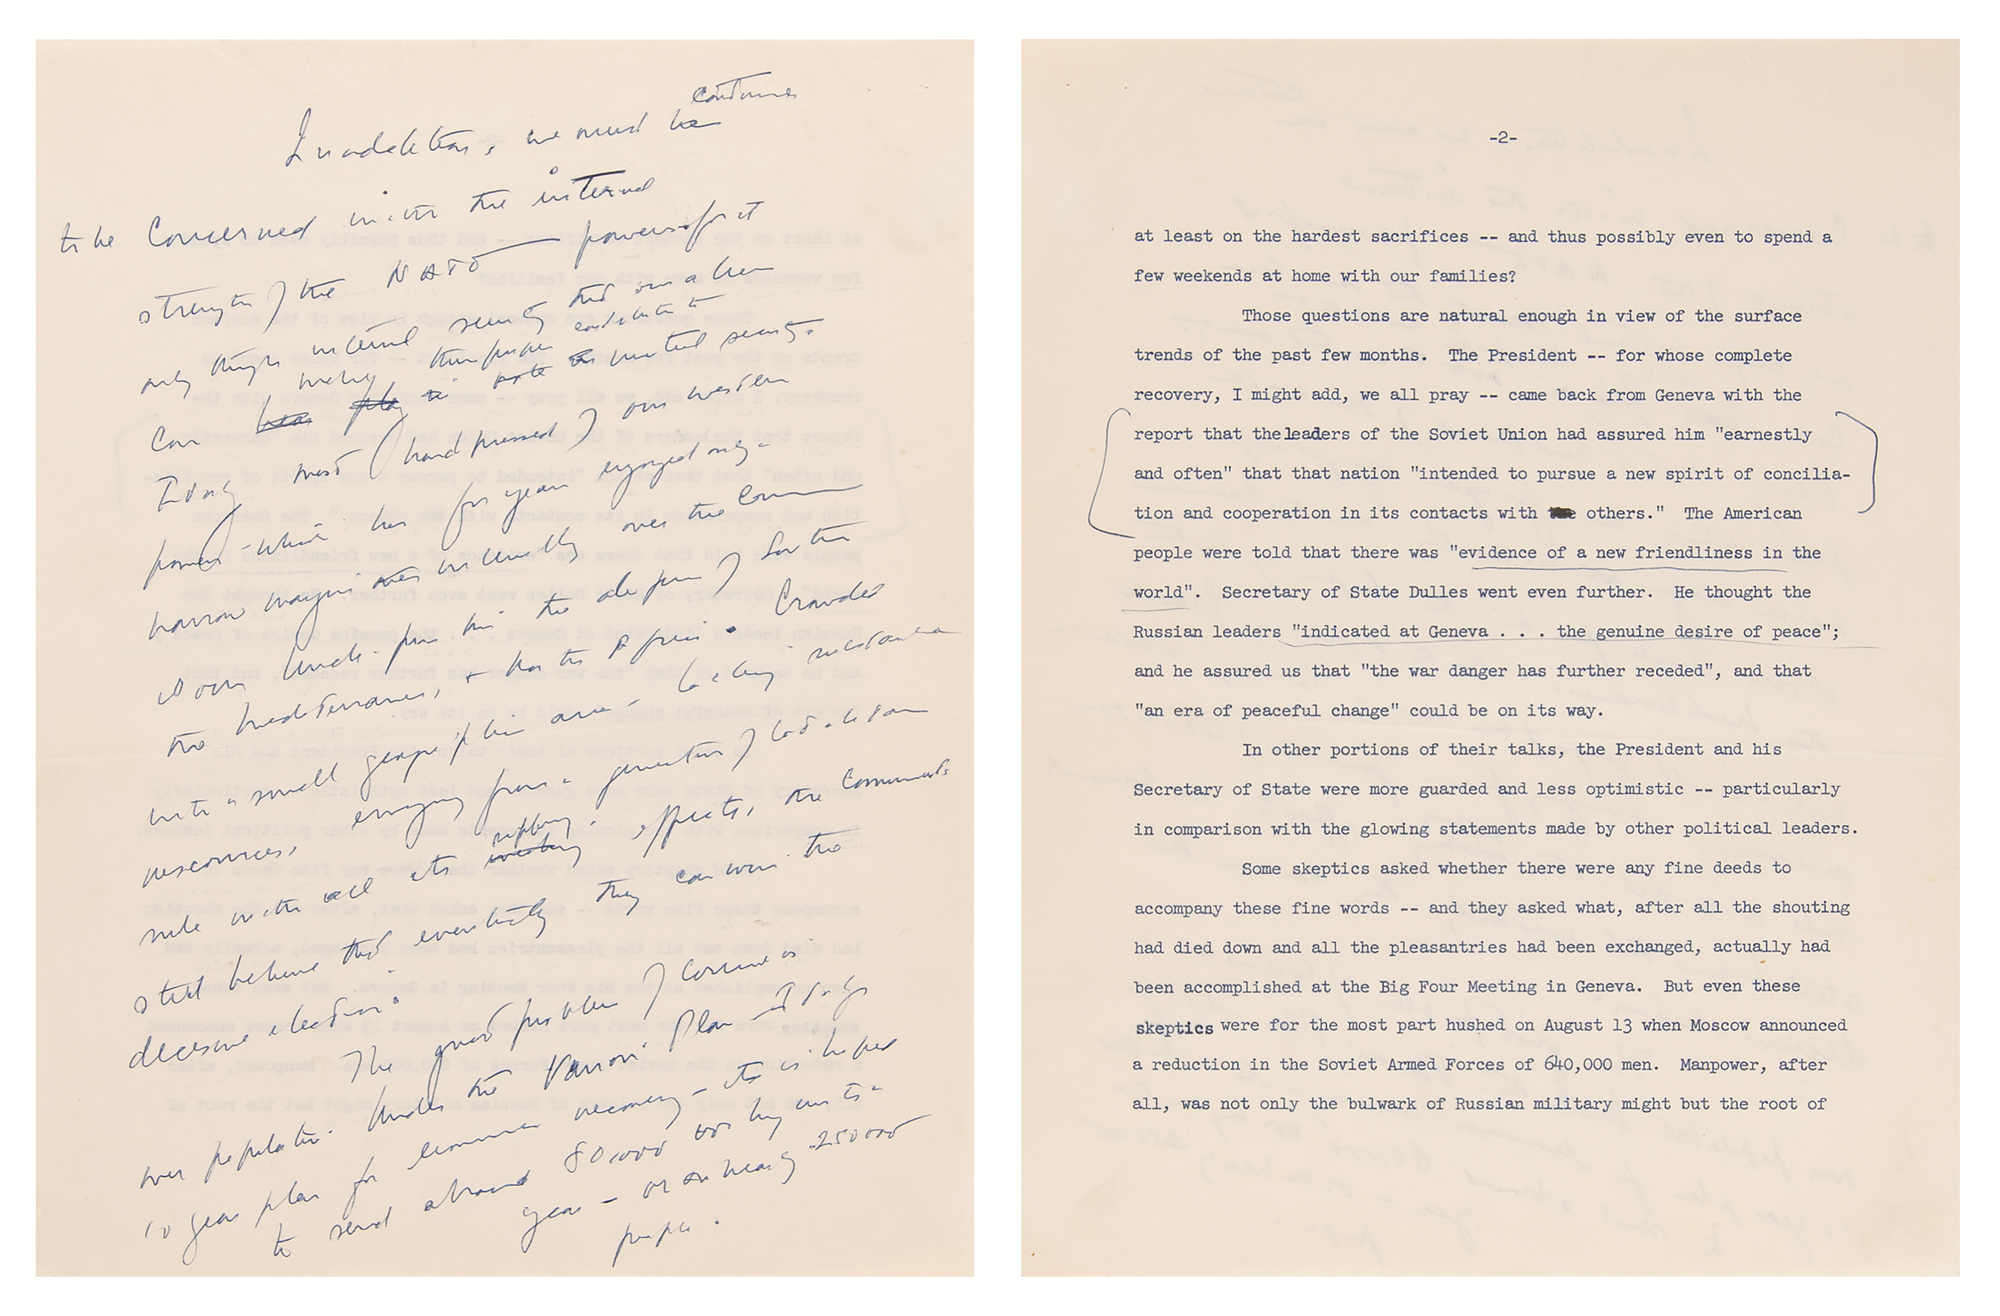 In addition, we must be
continue
to be concerned with the internal
strength of the NATO powers for it
only through internal security that our allies
can meaningfully contribute to mutual security.
Today most hard pressed of our western
powers which has for years enjoyed only a
narrow margin internally over the Communist
is our lynch-pin in the defense of Southern
the Mediterranean, & North Africa. Crowded
into a small geographic area - lacking substantial
resources, emerging from a generation of totalitarian
rule with all its crippling effects, the Communists
still believe that eventually they can win the
decisive election.
The great problem of course is
over population. Under the Vanoni Plan - Italy's
10 year plan for economic recovery - it is hoped
to send abroad 80,000 workers units a
year - or nearly 250000
people.
-2-
at least on the hardest sacrifices -- and thus possibly even to spend a
few weekends at home with our families?
Those questions are natural enough in view of the surface
trends of the past few months. The President -- for whose complete
recovery, I might add, we all pray -- came back from Geneva with the
report that the leaders of the Soviet Union had assured him "earnestly
and often" that that nation "intended to pursue a new spirit of concilia-
tion and cooperation in its contacts with others." The American
people were told that there was "evidence of a new friendliness in the
world". Secretary of State Dulles went even further. He thought the
Russian leaders "indicated at Geneva . . . the genuine desire of peace";
and he assured us that "the war danger has further receded", and that
"an era of peaceful change" could be on its way.
In other portions of their talks, the President and his
Secretary of State were more guarded and less optimistic -- particularly
in comparison with the glowing statements made by other political leaders.
Some skeptics asked whether there were any fine deeds to
accompany these fine words -- and they asked what, after all the shouting
had died down and all the pleasantries had been exchanged, actually had
been accomplished at the Big Four Meeting in Geneva. But even these
skeptics were for the most part hushed on August 13 when Moscow announced
a reduction in the Soviet Armed Forces of 640,000 men. Manpower, after
all, was not only the bulwark of Russian military might but the root of